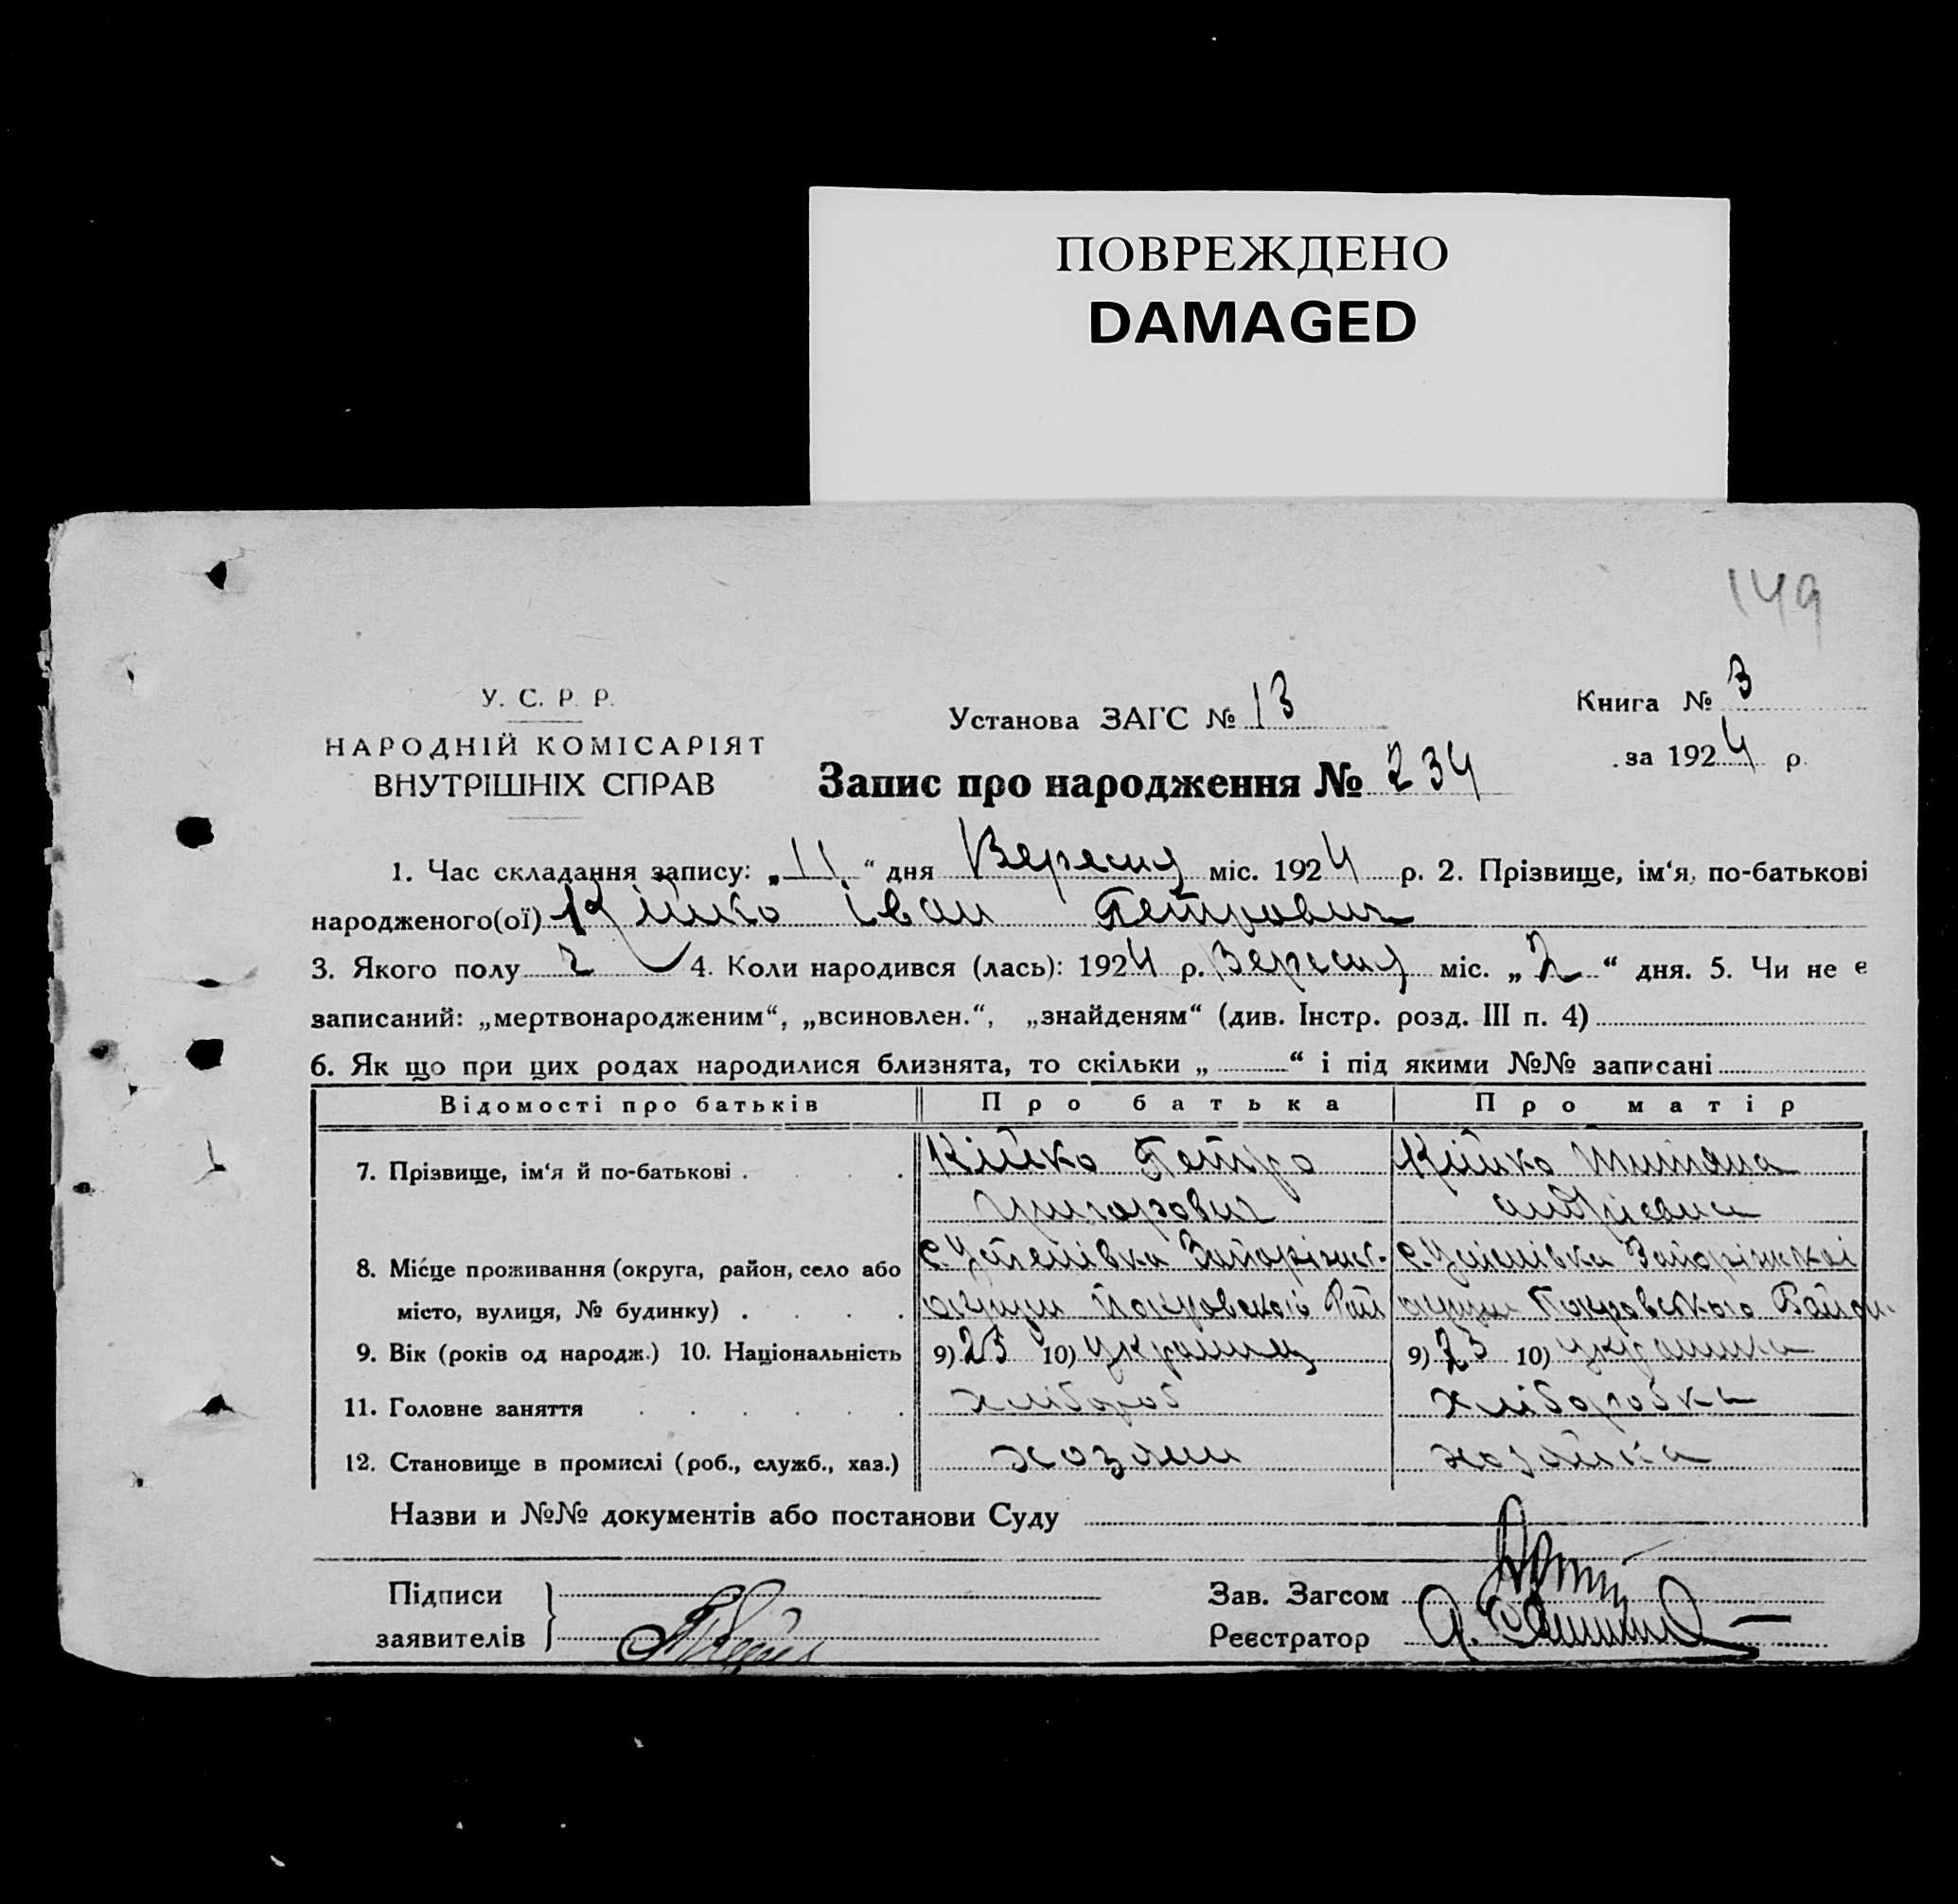 ПОВРЕЖДЕНО
DAMAGED
149
У. С. Р. Р.
НАРОДНІЙ КОМІСАРІЯТ
ВНУТРІШНІХ СПРАВ
Установа ЗАГС № 13
Книга № 3
за 1924 р.
Запис про народження № 234
1. Час складання запису: „11“ дня Вересня міс. 1924 р. 2. Прізвище, ім‘я, по-батькові
народженого(ої) Кійко Іван Петрович
3. Якого полу ч 4. Коли народився (лась): 1924 р. Вересня міс. „2“ дня. 5. Чи не є
записаний: „мертвонародженим“, „всиновлен.“, „знайденям“ (див. Інстр. розд. III п. 4)
6. Як що при цих родах народилися близнята, то скільки „ “ і під якими №№ записані
Відомості про батьків Про батька Про матір
7. Прізвище, ім‘я й по-батькові Кійко Петро Кійко Титяна
Григорович андрієвна
8. Місце проживання (округа, район, село або с. Успенівка Запоріжс. с. Успенівка Запоріжскої
місто, вулиця, № будинку) округи Покровского Рай округи Покровського Район.
9. Вік (років од народж.) 10. Національність 9) 23 10) Українец 9) 23 10) українка
11. Головне заняття хлібороб хлібororобка
12. Становище в промислі (роб., служб., хаз.) хозяин хозяйка
Назви и №№ документів або постанови Суду
Підписи
заявителів
Зав. Загсом
Реєстратор